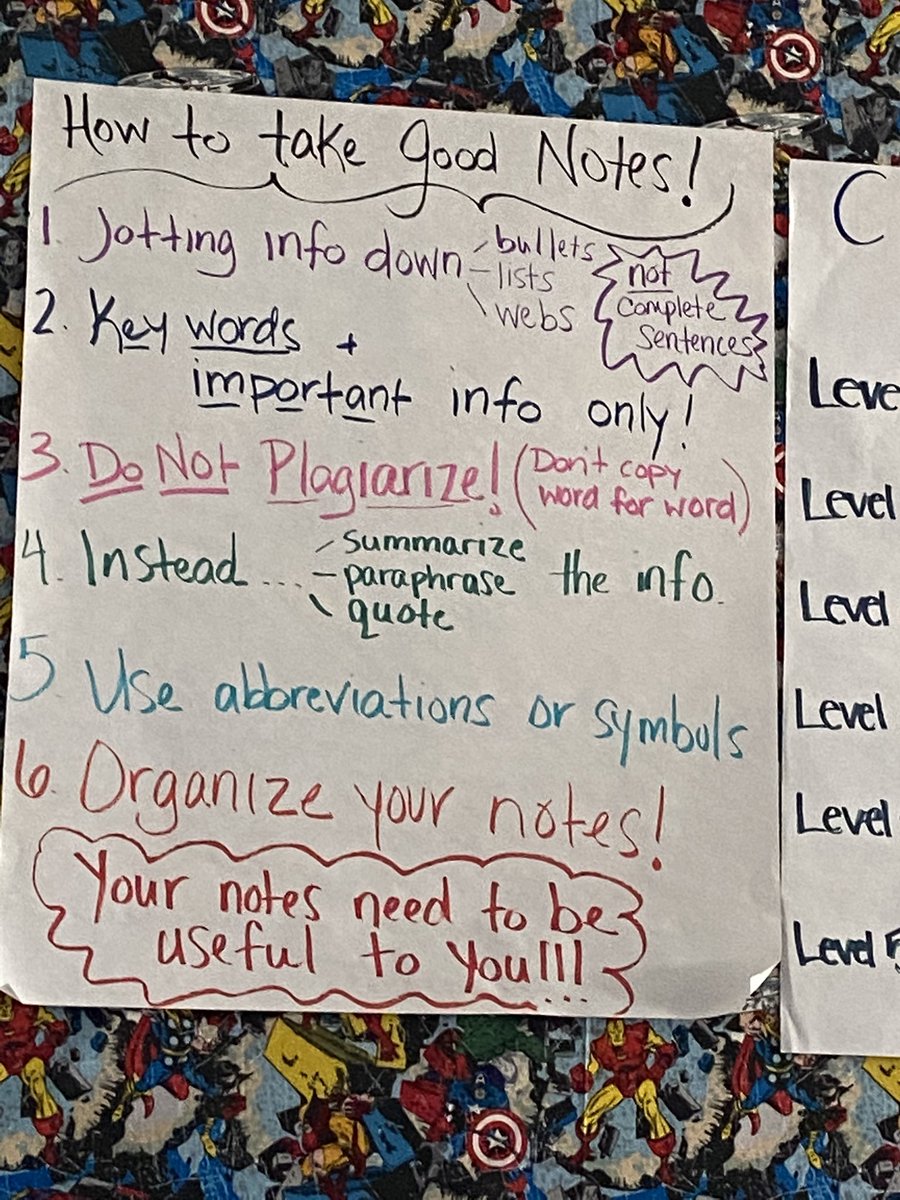 How to take good Notes!
1. Jotting info down - bullets
- lists
- webs
not
complete
sentences
2. Key words +
important info only!
3. Do Not Plagiarize! (Don't copy
word for word)
4. Instead... - summarize
- paraphrase the info.
- quote
5. Use abbreviations or symbols
6. Organize your notes!
Your notes need to be
useful to you!!!...
C
Leve
Level
Level
Level
Level
Level 5